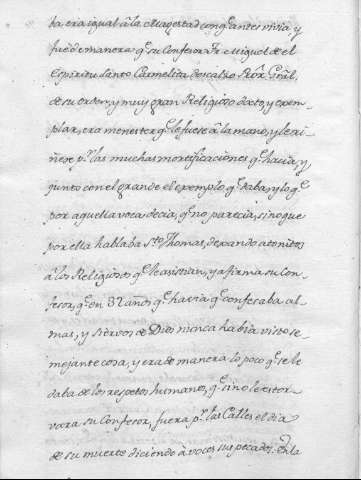 ba, era igual â la Magestad con q.e antes vivia y
fue de manera q.e su Confesor Fr. Miguel de el
Espiritu Santo Carmelita descalzo Prôr. Gnâl.
de su orden, y muy gran Religioso docto, y exem-
plar, era menester q.e le fuese â la mano, y le ri-
ñese p.r las muchas mortificaciones q.e hacia, y
junto con el grande el exemplo q.e daba, y lo q.e
por aquella voca decia, q.e no parecia, sino que
por ella hablaba S.to Thomas, dexando atonitos
â los Religiosos q.e le asistian, y afirma su Con-
fesor, q.e en 32 años q.e hacia q.e confesaba al-
mas, y siervos de Dios nunca habia visto se-
mejante cosa, y era de manera lo poco q.e se le
daba de los respetos humanos, q.e si no le estor-
vara su Confesor, fuera p.r las Calles el dia
de su muerte diciendo â voces sus pecados. En la